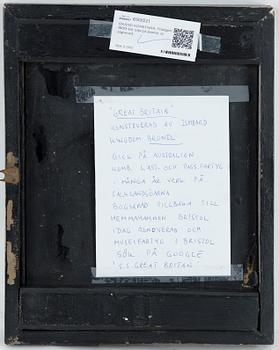 "GREAT BRITAIN"
KONSTRUERAD AV ISMBARD
KINGDOM BRUNEL
GICK PÅ AUSTRALIEN
KOMB. LAST- OCH PASS.FARTYG
MÅNGA ÅR VRAK PÅ
FALKLANDSÖARNA
BOGSERAD TILLBAKA TILL
HEMMAHAMNEN BRISTOL
IDAG RENOVERAD OCH
MUSEIFARTYG I BRISTOL
SÖK PÅ GOOGLE
"S.S. GREAT BRITAN"